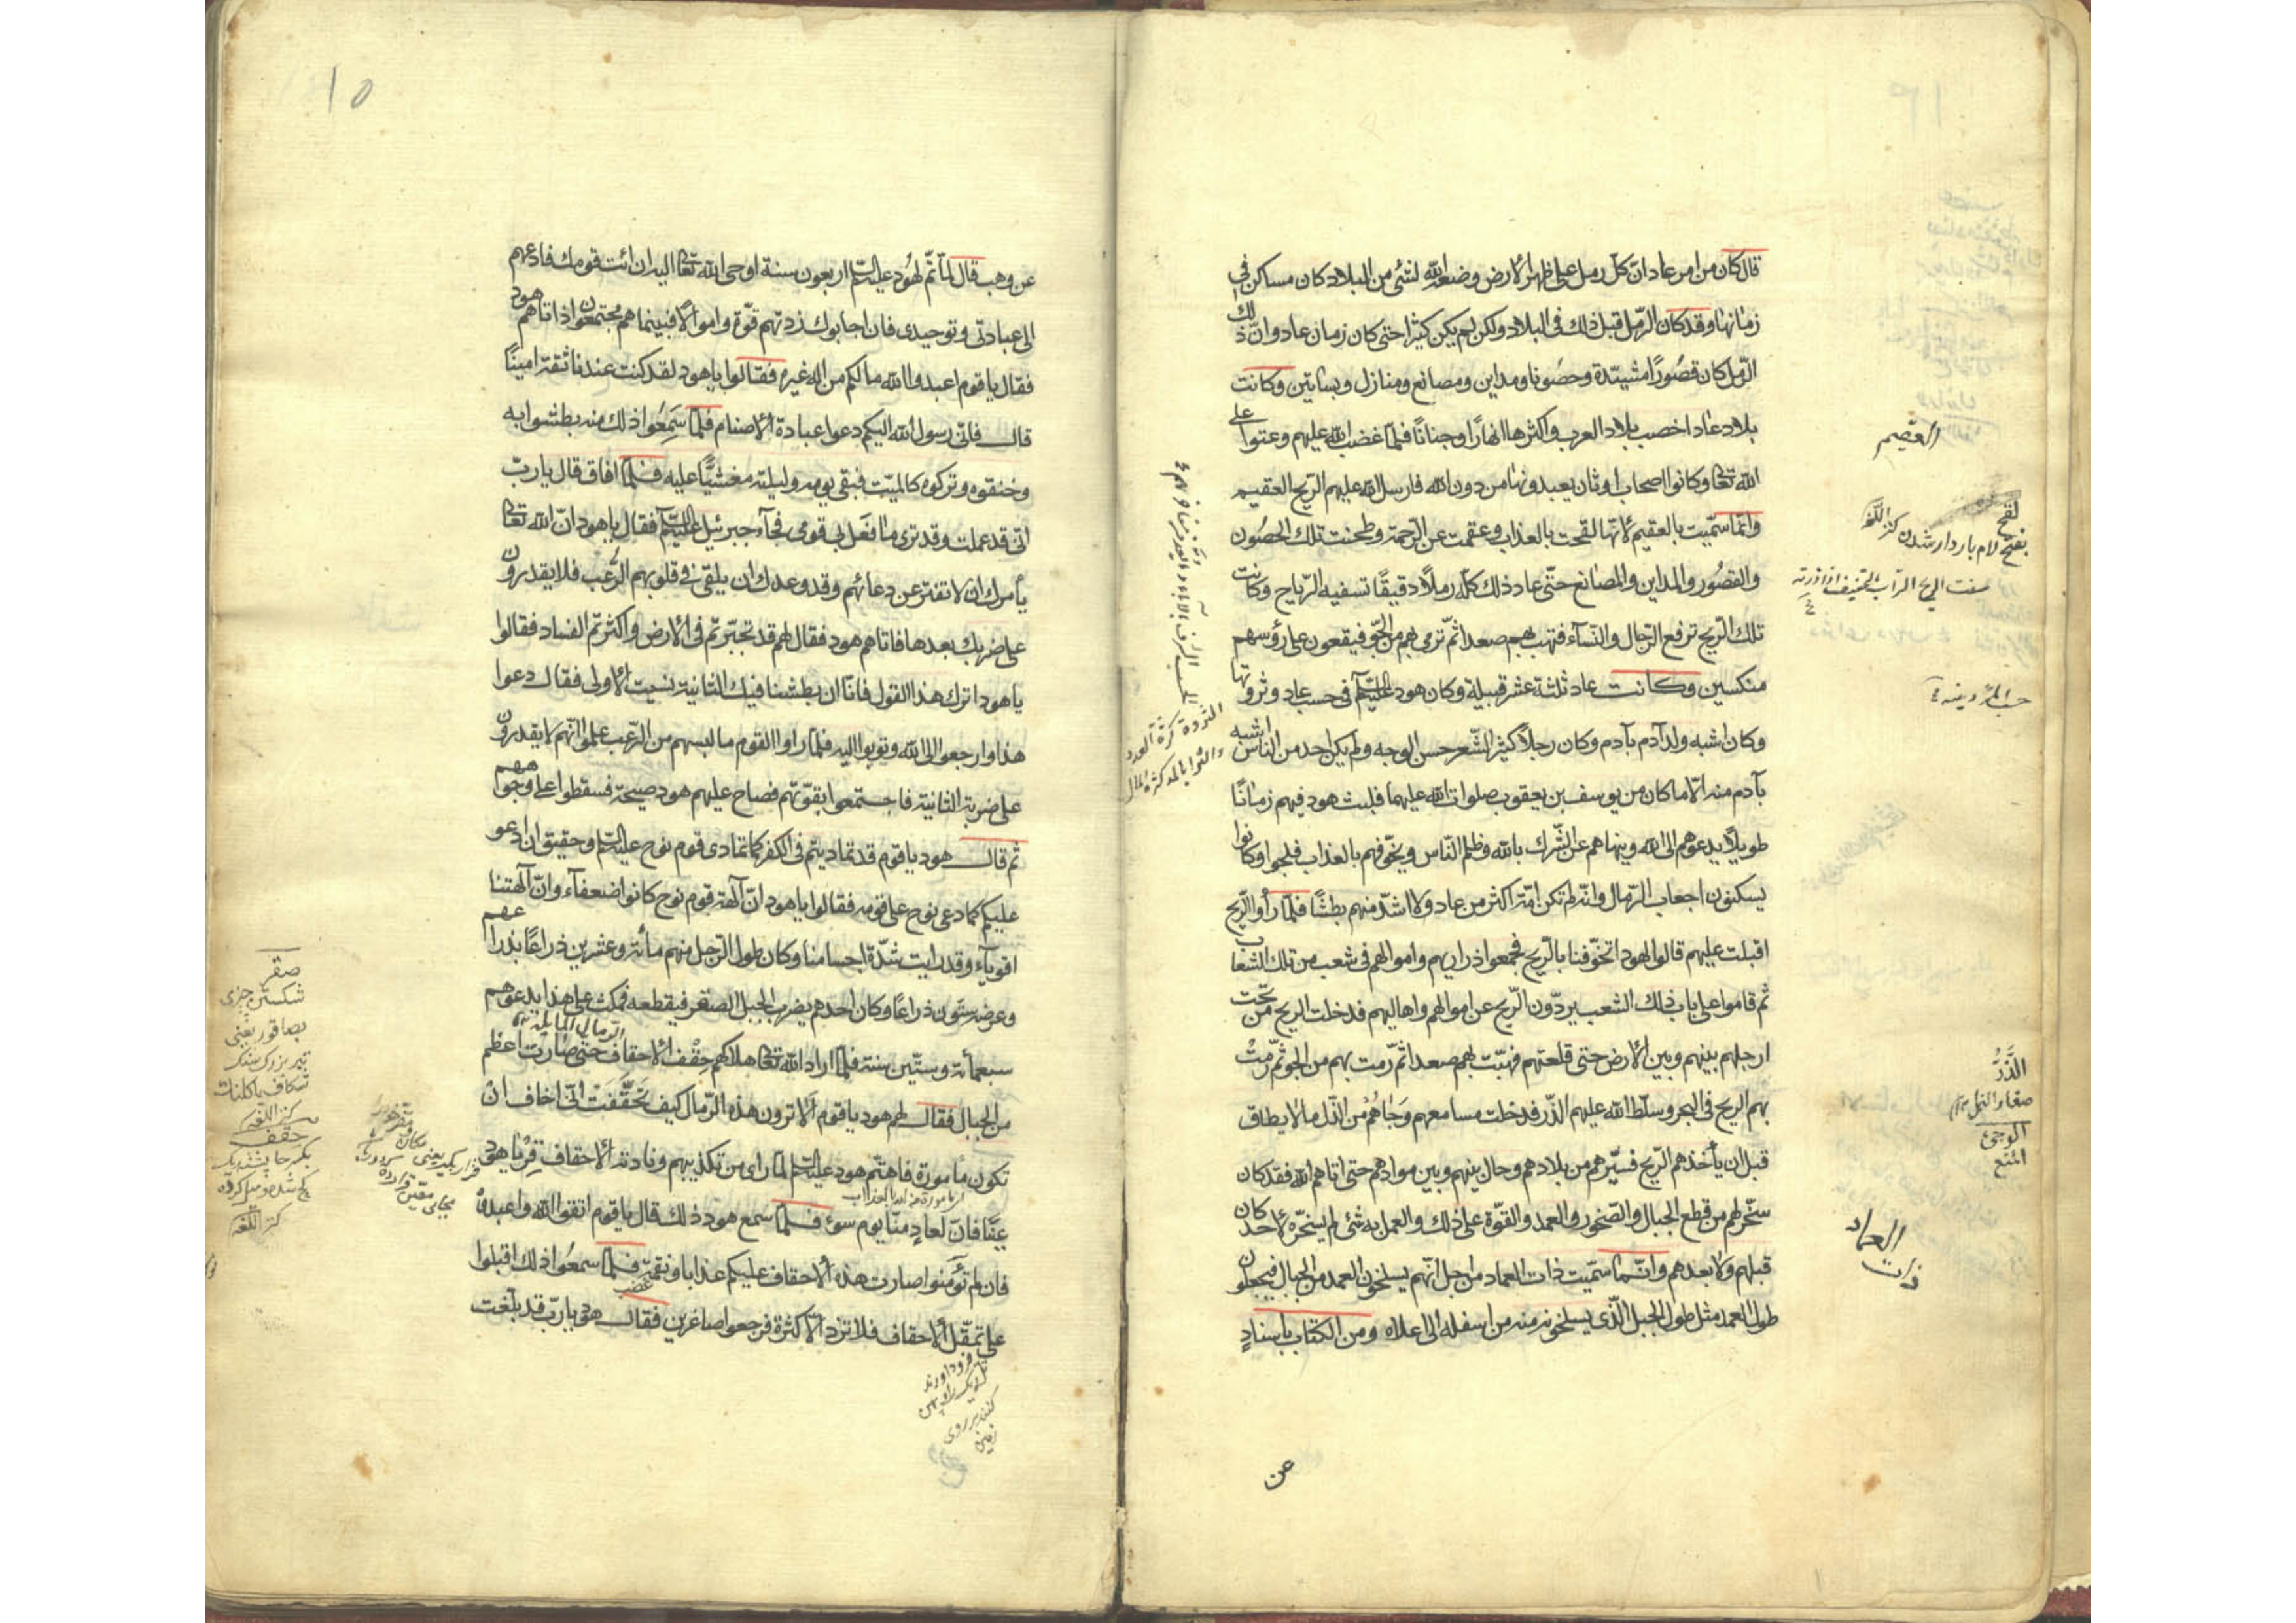 قال كان من امر عاد انّ كلّ رمل على ظهر الارض وضعه الله لشئ من البلاد كان مساكن في
زمانها وقد كان الرّمل قبل ذلك في البلاد ولكن لم يكن كثيرا حتى كان زمان عاد وانّ ذلك
الرّمل كان قصُورًا مشيّدة وحصُونا ومداين ومصانع ومنازل وبساتين وكانت
بلاد عاد اخصب بلاد العرب واكثرها انهارًا وجنانًا فلمّا غضب الله عليهم وعتوا على
الله تعالى وكانوا اصحاب اوثان يعبدونها من دون الله فارسل الله عليهم الرّيح العقيم
وانّما سمّيت بالعقيم لانّها لقحت بالعذاب وعقمت عن الرّحمة وطحنت تلك الحصُون
والقصُور والمداين والمصانع حتّى عاد ذلك كلّه رملًا دقيقًا تسفيه الرّياح وكانت
تلك الرّيح ترفع الرّجال والنّسآء فتهب بهم صعدا ثمّ ترمى بهم من الجّو فيقعون على رؤسهم
منكسين وكانت عاد ثلثة عشر قبيلة وكان هود عليه السّلم في حسب عاد وثروتها
وكان اشبه ولد آدم بآدم وكان رجلًا كثير الشّعر حسن الوجه ولم يكن احد من الناس اشبه
بآدم منه الّا ما كان من يوسف بن يعقوب صلوات الله عليهما فلبث هود فيهم زمانًا
طويلًا يدعوهم الى الله وينهاهم عن الشّرك بالله وظلم النّاس ويخوّفهم بالعذاب فلجوا وكانوا
يسكنون اجعاب الرّمال وانّه لم تكن امّة اكثر من عاد ولا اشدّ منهم بطشًا فلمّا رأوا الرّيح
اقبلت عليهم قالوا لهود اتخوّفنا بالرّيح فجمعوا ذراريهم واموالهم في شعب من تلك الشعاب
ثم قاموا على باب ذلك الشعب يردّون الرّيح عن اموالهم واهاليهم فدخلت الريح من تحت
ارجلهم بينهم وبين الارض حتى قلعتهم فهبّت بهم صعدا ثمّ رمت بهم من الجو ثمّ رمتْ
بهم الريح في البحر وسلّط الله عليهم الذّر فدخلت مسامعهم وجاهُمْ من الذّل ما لا يطاق
قبل ان يأخذهم الرّيح فسيّرهم من بلادهم وحال بينهم وبين موادهم حتى اتاهم الله فقد كان
سخّر لهم من قطع الجبال والصّخور والعمد والقوّة على ذلك والعمل به شئ لم يسخّره لأحد كان
قبلهم ولا بعدهم وانّما سمّيت ذات العماد من اجل انّهم يسلخون العمد من الجبال فيجعلون
طول العمد مثل طول الجبل الّذى يسلخونه منه من اسفله الى اعلاه ومن الكتاب باسنادٍ
عن
العقيم
لقح
بفتح لام باردار شدن كنز اللّغة
سفت الريح التراب
الثروة كثرة العدد
والثرا بالمد كثرة المال
الذَّرُّ
صغار النمل
الوجئ
المنع
ذات العماد
١٥
عن وهب قال لمّا تمّ لهُود عليه السّلم اربعون سنة اوحى الله تعالى اليه ان ائت قومك فادعهم
الى عبادتى وتوحيدى فان اجابوك زدتهم قوّة واموالًا فبينما هم مجتمعون اذ اتاهم هود
فقال يا قوم اعبدوا الله ما لكم من اله غيره فقالوا يا هود لقد كنت عندنا ثقة امينًا
قال فانّى رسول الله اليكم دعوا عبادة الاصنام فلمّا سَمِعُوا ذلك منه بطشوا به
وخنقوه وتركوه كالميّت فبقى يومه وليلته مغشيًّا عليه فلمّا افاق قال يا ربّ
انّى قد عملت وقد ترى ما فعَل بى قومى فجآء جبرئيل عليه السّلم فقال يا هود انّ الله تعالى
يأمرك ان لا تفتر عن دعائهم وقد وعدك ان يلقى في قلوبهم الرُّعب فلا يقدرون
على ضربك بعدها فاتاهم هود فقال لهم قد تجبّرتم في الارض واكثرتم الفساد فقالوا
يا هود اترك هذا القول فانّا ان بطشنا فيك الثانية نسيت الاولى فقال دعوا
هذا وارجعوا الى الله وتوبوا اليه فلمّا راوا القوم ما لبسهم من الرّعب علموا انّهم لا يقدرون
على ضربة الثانية فاجتمعوا بقوّتهم فصاح عليهم هود صيحة فسقطوا على وجوههم
ثم قال هود يا قوم قد تماديتم في الكفر كما تمادى قوم نوح عليه السّلم وحقيق ان ادعو
عليكم كما دعى نوح على قومه فقالوا يا هود انّ آلهة قوم نوح كانوا ضعفآء وانّ آلهتنا
اقويآء وقد رايت شدّة اجسامنا وكان طول الرّجل منهم مأة وعشرين ذراعًا بذراعهم
وعرضه ستّون ذراعًا وكان احدهم يضرب الجبل الصّغير فيقطعه فمكث على هذا يدعوهم
سبعمأة وستّين سنة فلمّا اراد الله تعالى هلاكهم حِقْف الاحقاف حتّى صارت اعظم
من الجبال فقال لهم هود يا قوم اَلا ترون هذه الرّمال كيف تَحَقَّفَتْ انّى اخاف ان
تكون مأمورة فاهتّم هود عليه السّلم لما راى من تكذيبهم ونادته الاحقاف قرّ يا هود
عينًا فانّ لعادٍ منّا يوم سوء فلمّا سمع هود ذلك قال يا قوم اتقوا الله واعبدوه
فان لم تؤمنوا صارت هذه الاحقاف عليكم عذابا ونقمة فلمّا سمعُوا ذلك اقبلوا
على تنقّل الاحقاف فلا تزداد الّا كثرة فرجعوا صاغرين فقال هود يا ربّ قد بلّغت
صقر
شكستن چيزى
بصاقور يعنى
تبر بزرگ سنگ
شكاف يا كلنك
كنز اللغه
حقف
كنز اللغه